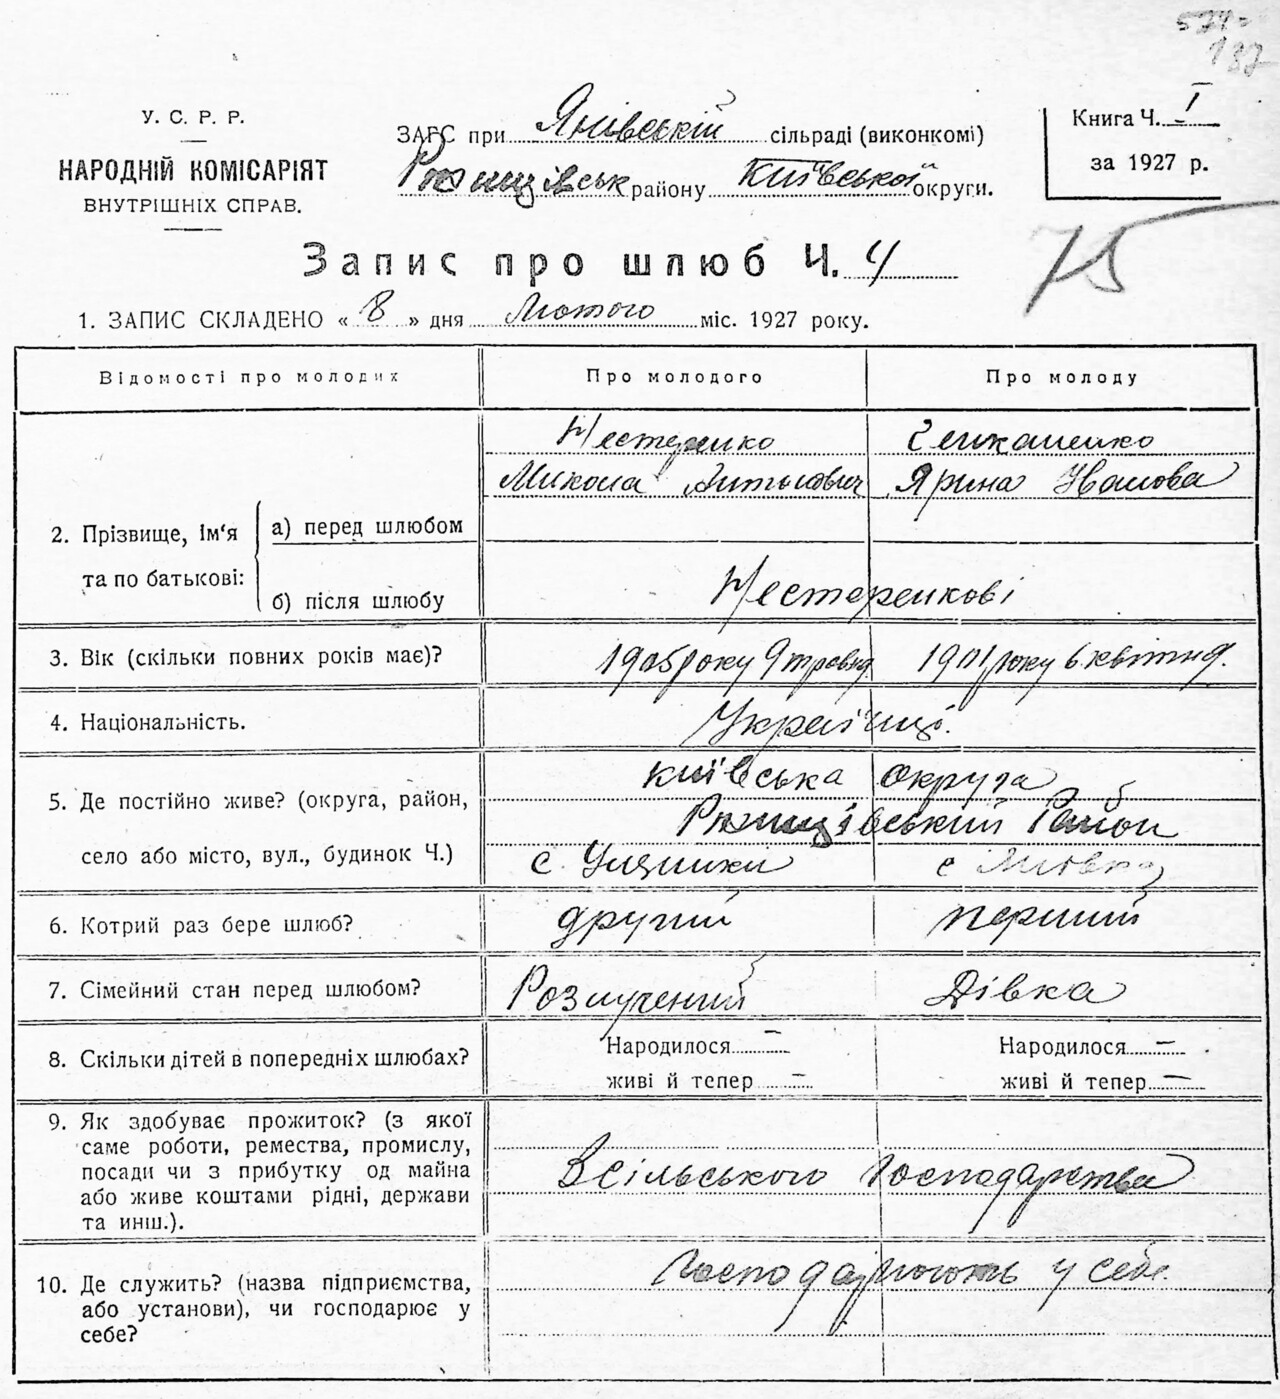 574
137
У. С. Р. Р.
НАРОДНІЙ КОМІСАРІЯТ
ВНУТРІШНІХ СПРАВ.
ЗАГС при Янівській сільраді (виконкомі)
Ржищівськ району Київської округи.
Книга Ч. I
за 1927 р.
75
Запис про шлюб Ч. 4
1. ЗАПИС СКЛАДЕНО « 8 » дня Лютого міс. 1927 року.
Відомості про молодих Про молодого Про молоду
2. Прізвище, ім'я та по батькові:
а) перед шлюбом
Нестеренко
Микола Ярина Иванова
б) після шлюбу
Нестеренкові
3. Вік (скільки повних років має)? 1905 року 9 травня 1901 року 6 квітня.
4. Національність. Українці.
5. Де постійно живе? (округа, район,
село або місто, вул., будинок Ч.)
Київська округа
Ржищівський Район
с с
6. Котрий раз бере шлюб? другий перший
7. Сімейний стан перед шлюбом? Розлучений Дівка
8. Скільки дітей в попередніх шлюбах? Народилося — Народилося —
живі й тепер — живі й тепер —
9. Як здобуває прожиток? (з якої
саме роботи, ремества, промислу,
посади чи з прибутку од майна
або живе коштами рідні, держави
та инш.).
З сільського господарства
10. Де служить? (назва підприємства,
або установи), чи господарює у
себе?
Господарюють у себе.